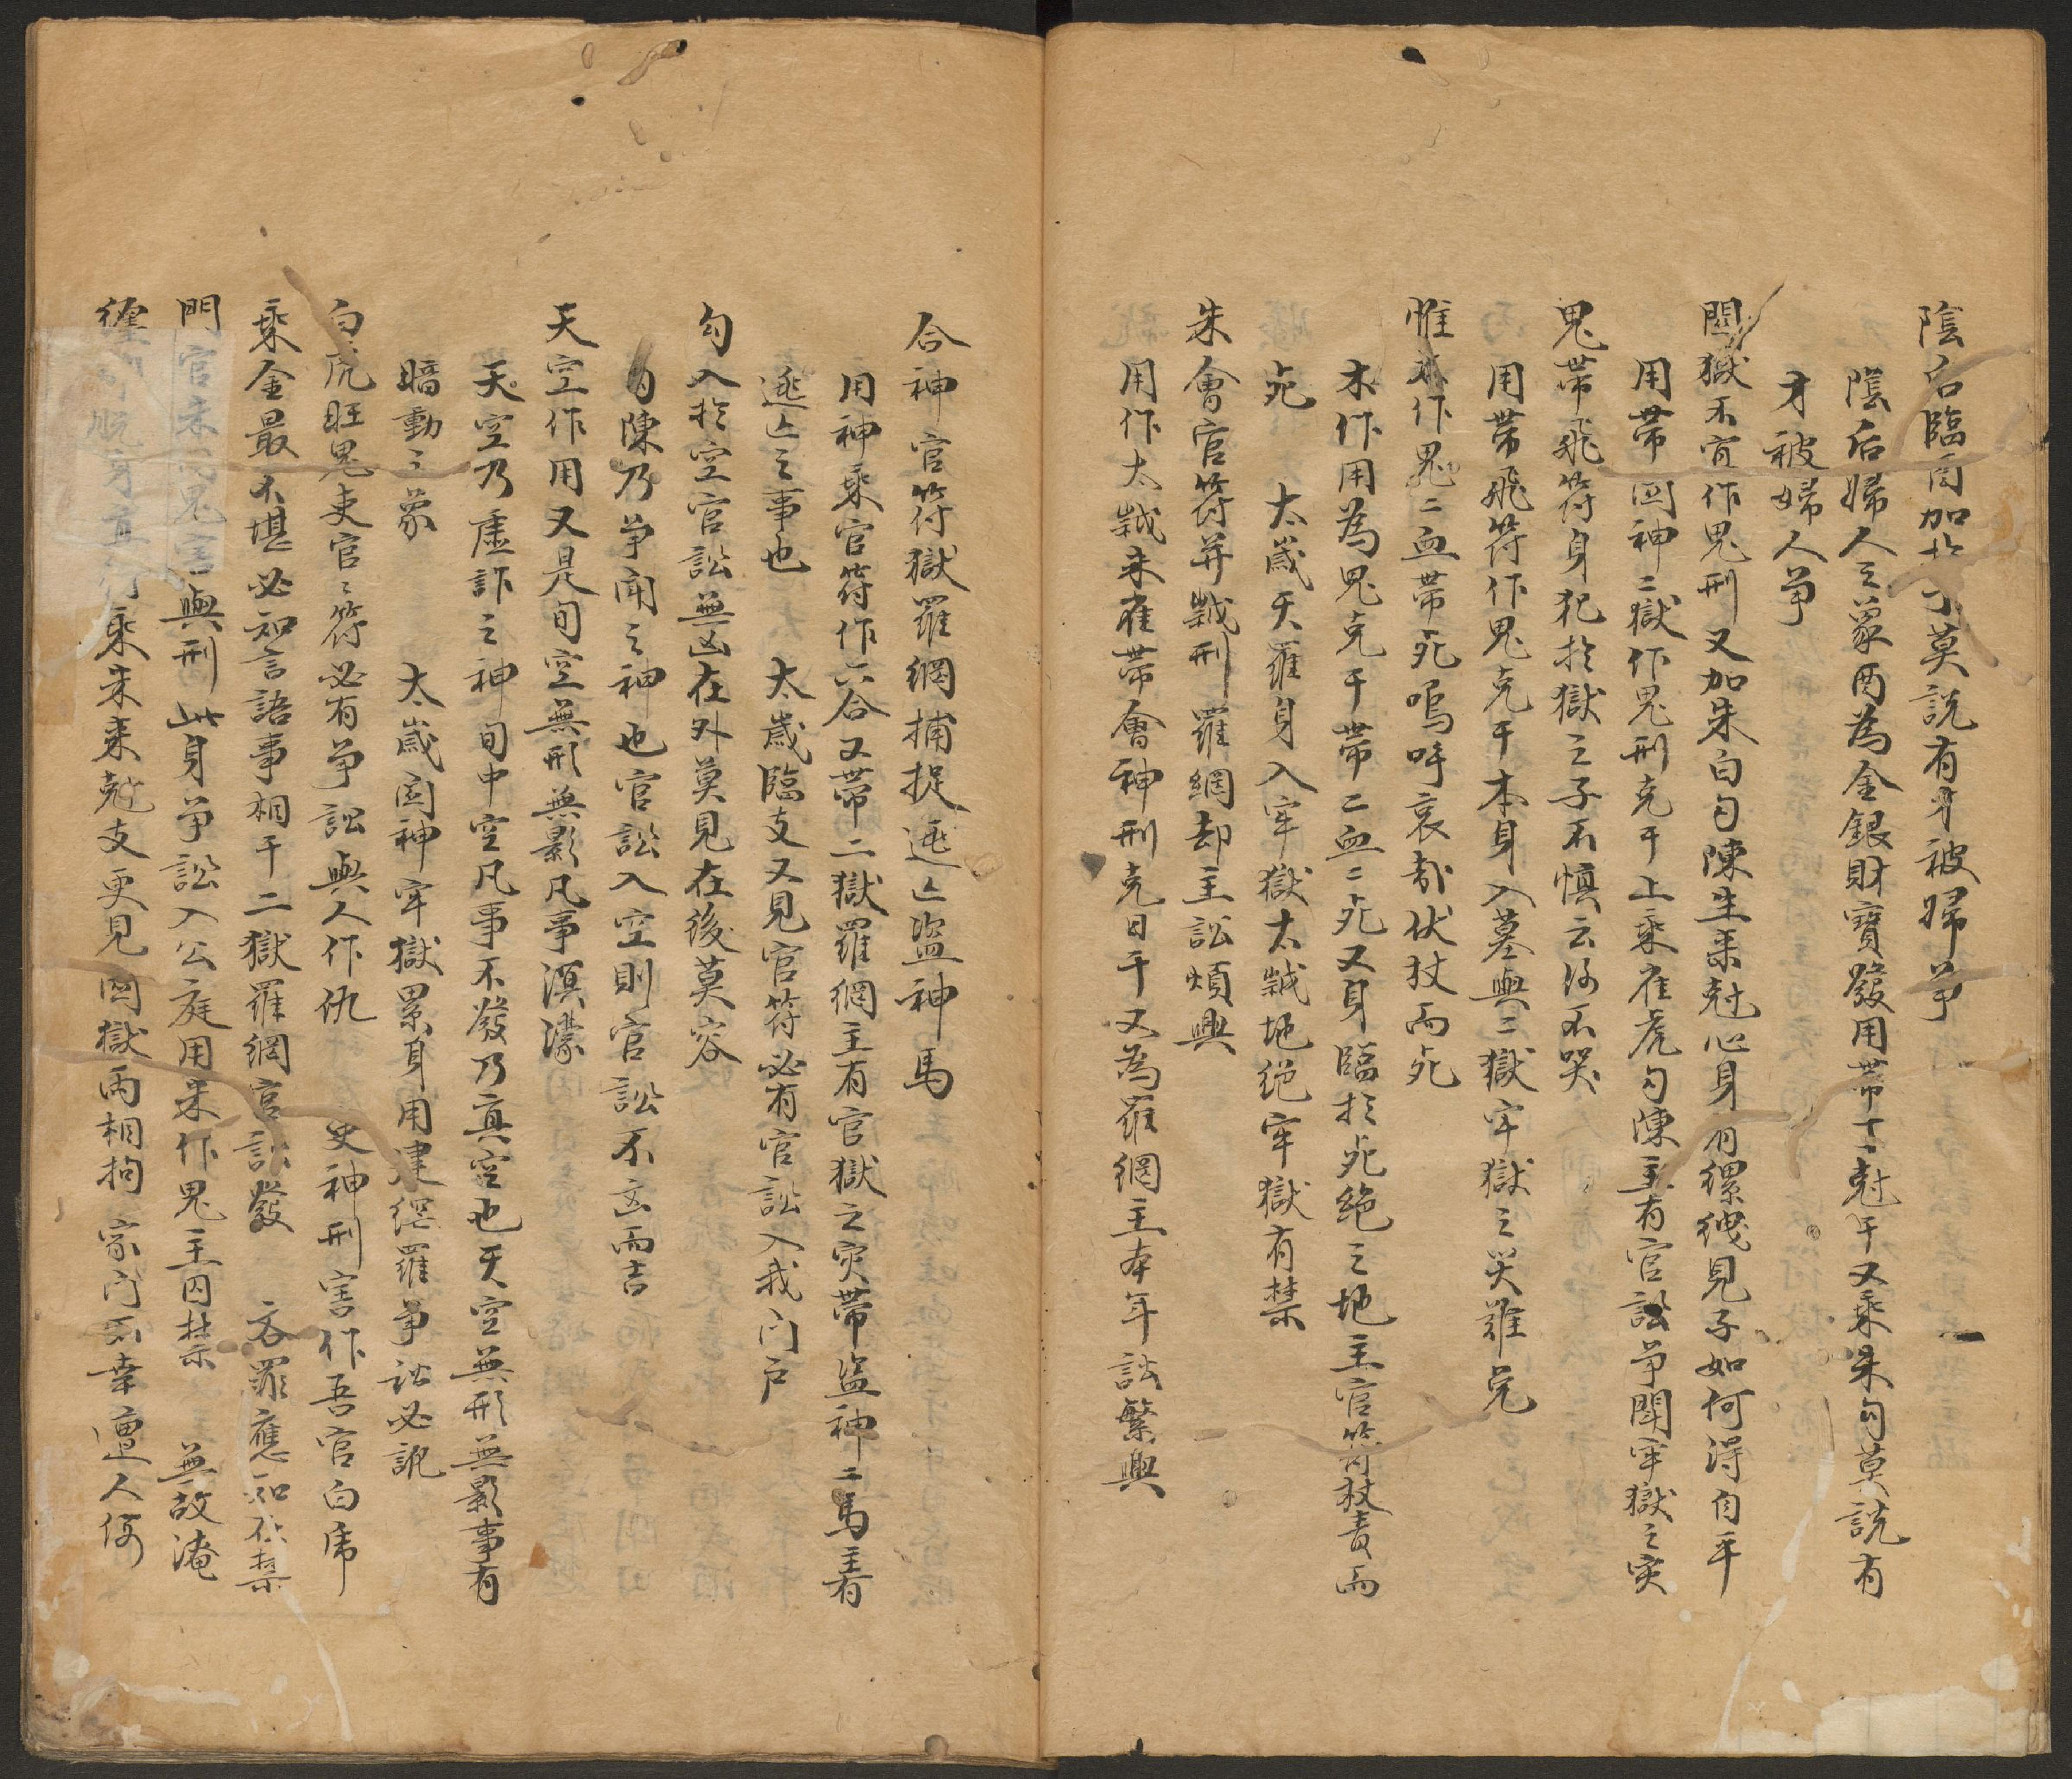 陰后臨酉加於丁莫說有才被婦爭
陰后婦人之象酉為金銀財寶發用帶丁尅干又乘朱勾莫說有
才被婦人爭
関獄不宜作鬼刑又加朱白勾陳生乘尅心身用縲绁見子如何得自平
用帶囚神二獄作鬼刑克干上乘雀虎勾陳主有官訟爭鬪牢獄之灾
鬼帶飛符身犯於獄之子不慎云何不哭
用帶飛符作鬼克干本身入墓與二獄牢獄之哭難免
惟木作鬼二血帶死嗚呼哀哉伏杖而死
木作用為鬼克干帶二血二死又身臨於死絕之地主官符杖責而
死　太歲天羅身入牢獄太歲地绝牢獄有禁
朱會官符并歲刑羅網却主訟煩興
用作太歲朱雀帶會神刑克日干又為羅網主本年訟繁興
合神官符獄羅網捕捉逃亾盜神馬
用神乘官符作六合又帶二獄羅網主有官獄之灾帶盜神二馬主有
逃亾之事也　太歲臨支又見官符必有官訟入我门户
勾入於空官訟無凶在外莫見在後莫容
勾陳乃爭鬧之神也官訟入空則官訟不凶而吉
天空作用又是旬空無形無影凡事溟濛
天空乃虛詐之神旬中空凡事不發乃真空也天空無形無影事有
暗動之象　太歲囚神牢獄累身用建绲羅爭訟必訛
白虎旺鬼吏官々符必有爭訟與人作仇　史神刑害作吾官白虎
乘金最不堪必知言語事相干二獄羅網官訟發　吝罪應知不禁
門官未為鬼害與刑此身爭訟入公庭用朱作鬼主囚禁　無故淹
纏
乘朱来尅支更見囚獄兩相拘　家门不幸遭人何